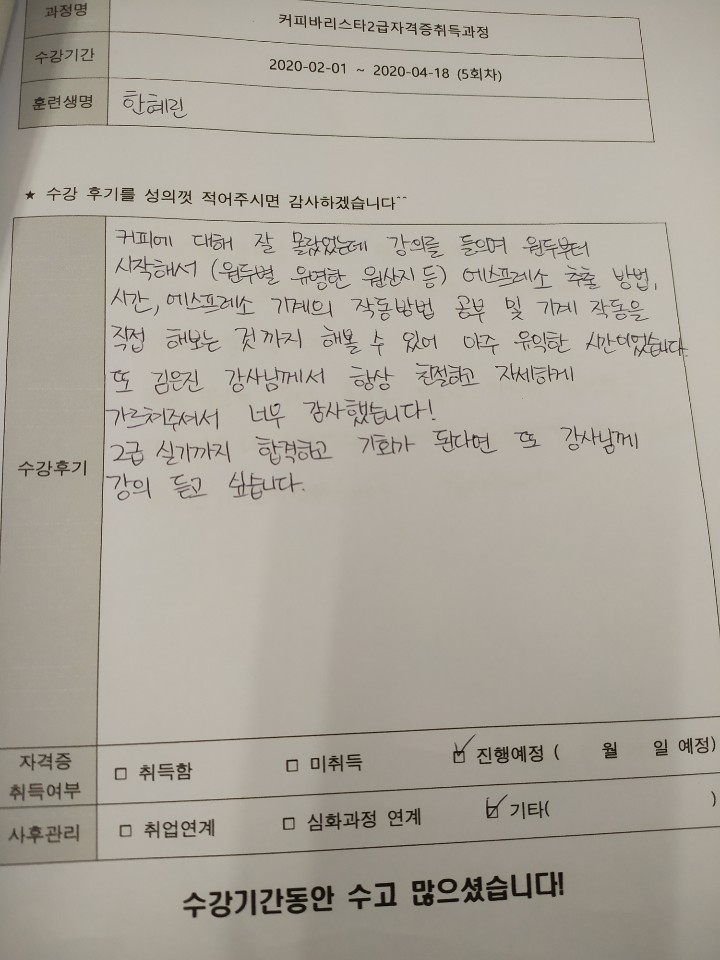 과정명 커피바리스타2급자격증취득과정
수강기간 2020-02-01 ~ 2020-04-18 (5회차)
훈련생명 한혜린
★ 수강 후기를 성의껏 적어주시면 감사하겠습니다^^
커피에 대해 잘 몰랐었는데 강의를 들으며 원두부터
시작해서 (원두별 유명한 원산지 등) 에스프레소 추출 방법,
시간, 에스프레소 기계의 작동방법 공부 및 기계 작동을
직접 해보는 것까지 해볼 수 있어 아주 유익한 시간이었습니다.
또 김은진 강사님께서 항상 친절하고 자세하게
가르쳐주셔서 너무 감사했습니다!
2급 실기까지 합격하고 기회가 된다면 또 강사님께
수강후기
강의 듣고 싶습니다.
자격증
취득여부
□ 취득함 □ 미취득 ☑ 진행예정 ( 월 일 예정)
사후관리 □ 취업연계 □ 심화과정 연계 ☑ 기타( )
수강기간동안 수고 많으셨습니다!